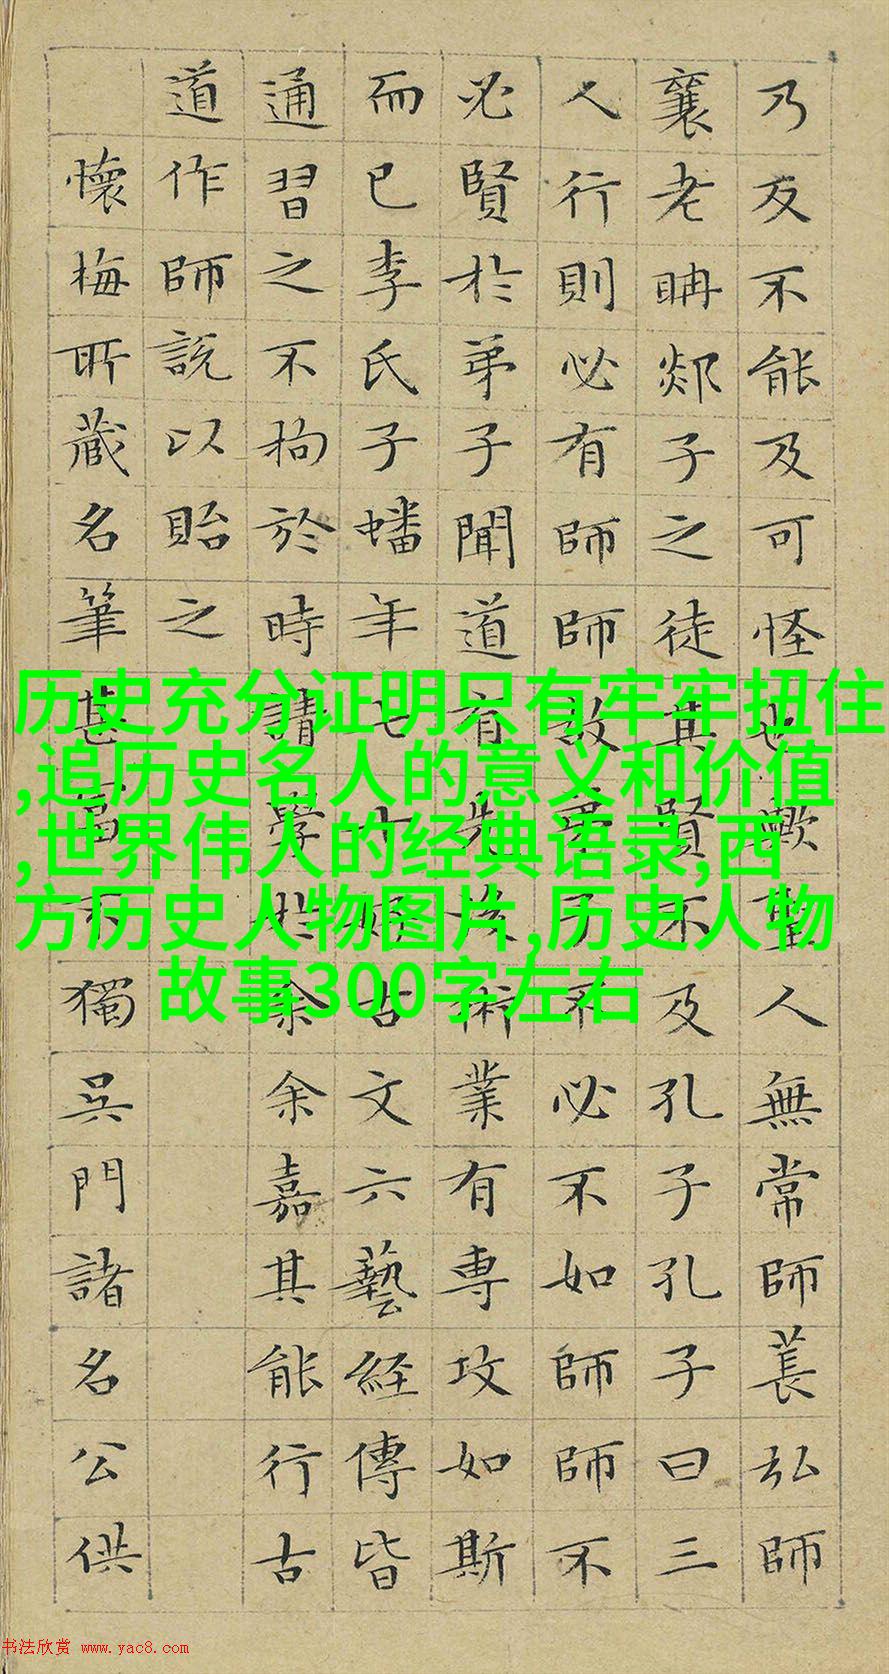 乃反不能及可怪也歟聖人無常師萇弘師
襄老聃郯子之徒其賢不及孔子孔子曰三
人行則必有師師故弟子不必不如師師不
必賢於弟子聞道有先後術業有專攻如斯
而已李氏子蟠年七十好古文六藝経傳皆
通習之不拘於時請學於余余嘉其能行古
道作師說以貽之
懷梅所藏名筆甚富不獨吳門諸名公供
历史充分证明只有牢牢扭住
,追历史名人的意义和价值
,世界伟人的经典语录,西
方历史人物图片,历史人物
故事300字左右
书法欣赏 www.yac8.com